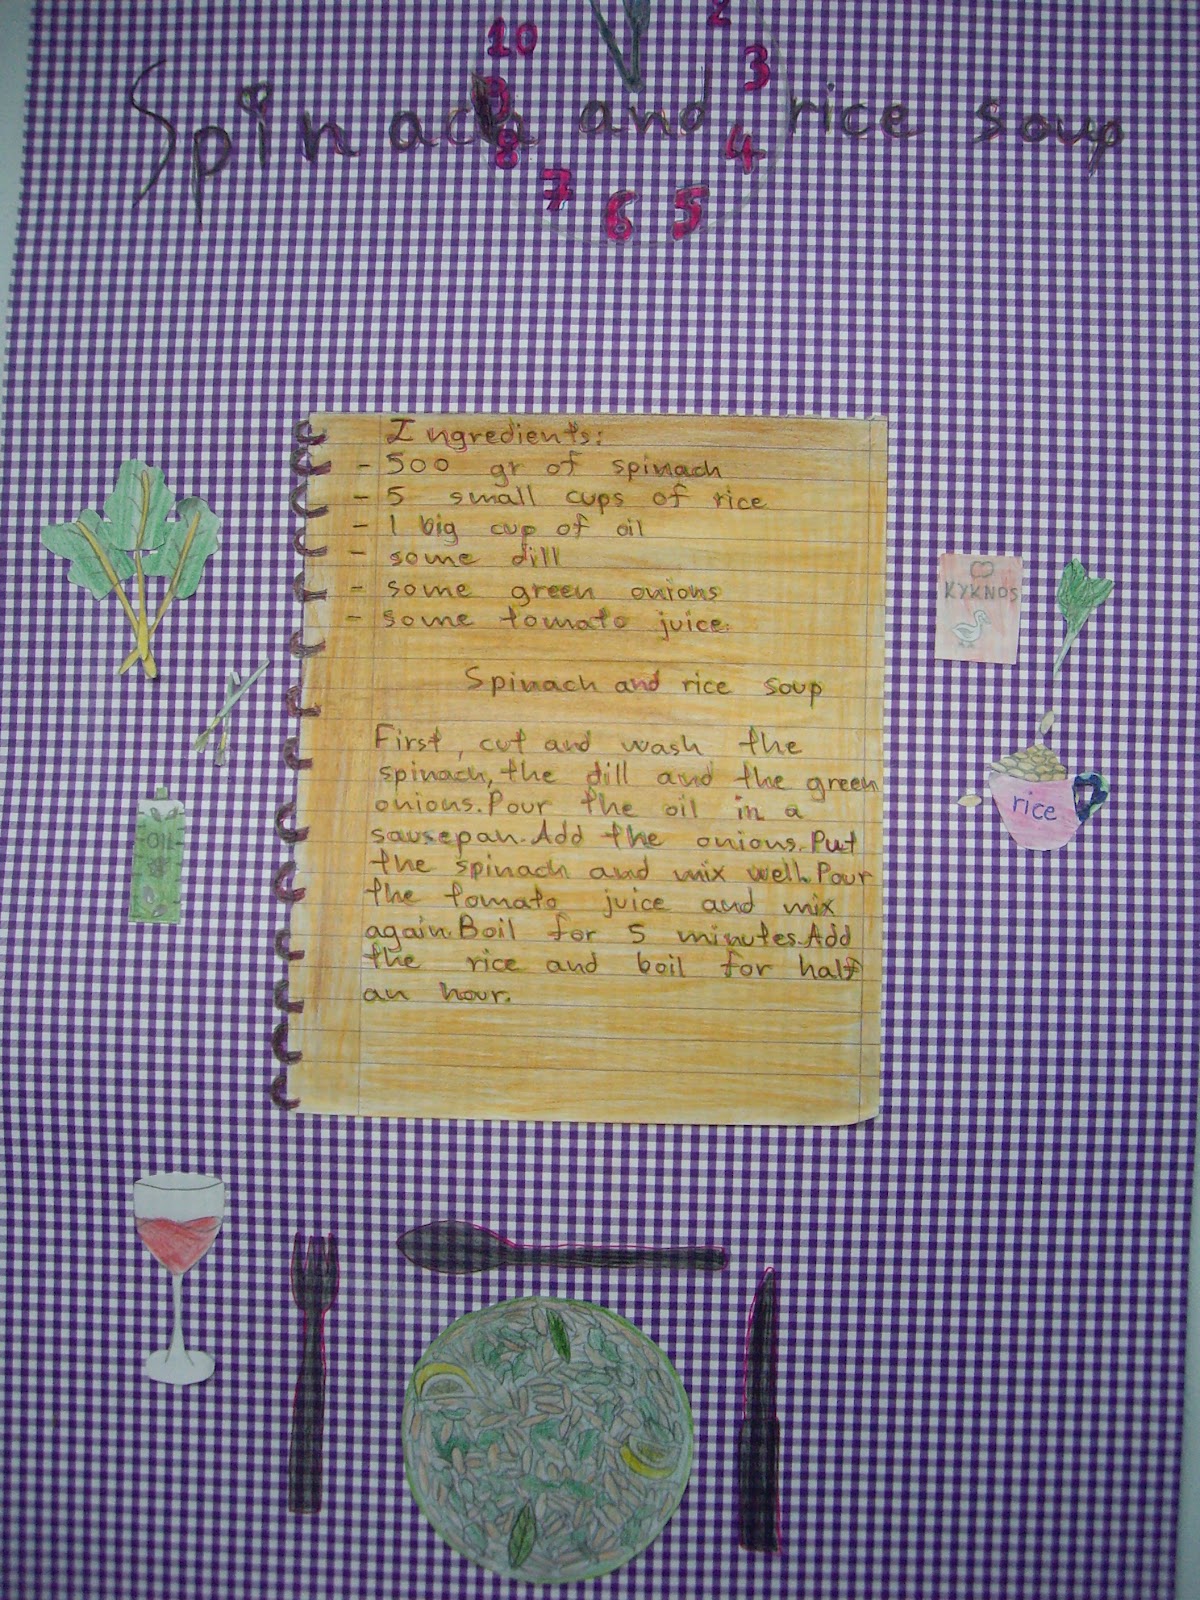 10
2
3
Spinach and rice soup
9
8
4
7
6
5
Ingredients:
- 500 gr of spinach
- 5 small cups of rice
- 1 big cup of oil
- some dill
- some green onions
- some tomato juice.
Spinach and rice soup
First, cut and wash the
spinach, the dill and the green
onions. Pour the oil in a
sausepan. Add the onions. Put
the spinach and mix well. Pour
the tomato juice and mix
again. Boil for 5 minutes. Add
the rice and boil for half
an hour.
KYKNOS
rice
OIL